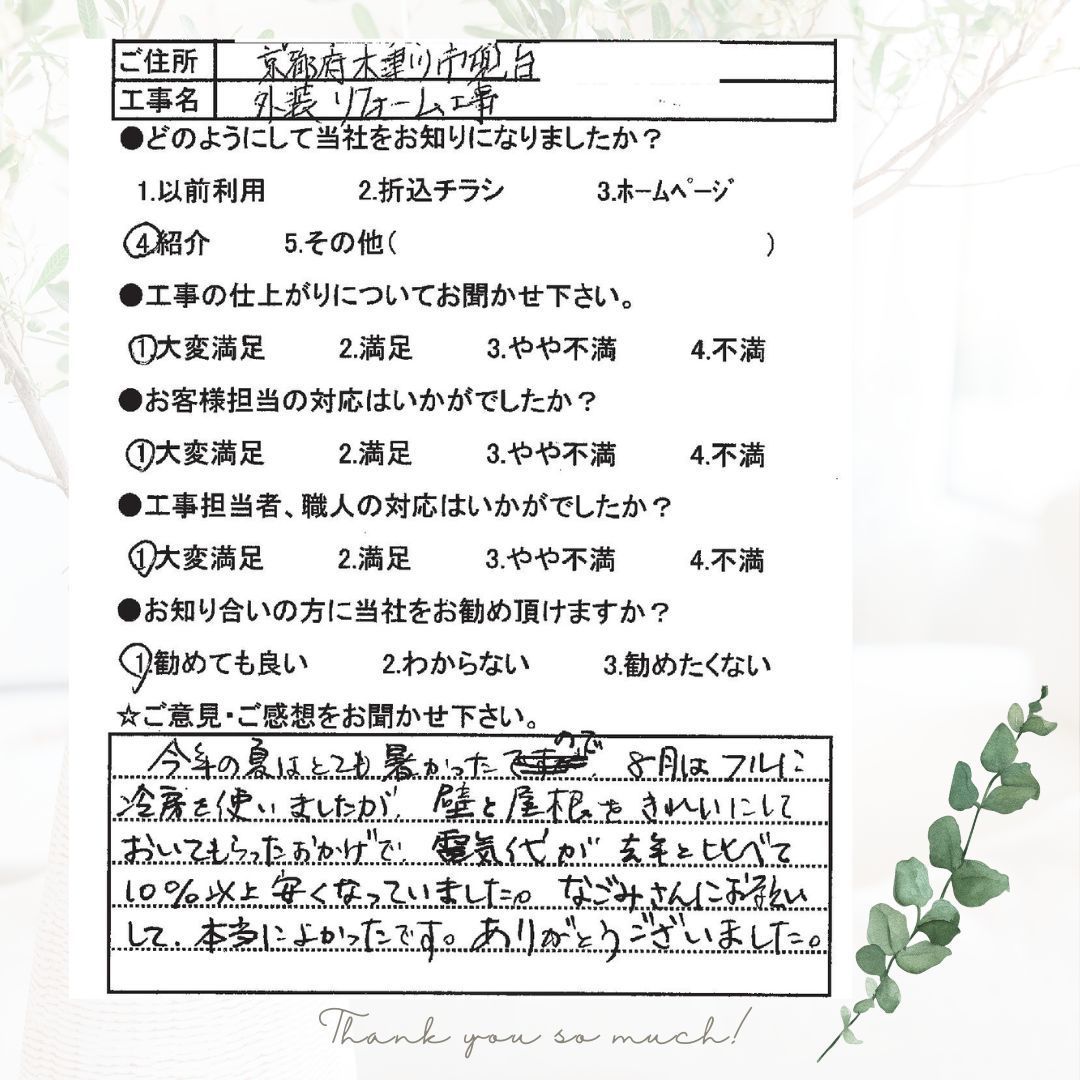 ご住所 京都府木津川市兜台
工事名 外装リフォーム工事
●どのようにして当社をお知りになりましたか？
1.以前利用 2.折込チラシ 3.ホームページ
4.紹介 5.その他( )
●工事の仕上がりについてお聞かせ下さい。
1.大変満足 2.満足 3.やや不満 4.不満
●お客様担当の対応はいかがでしたか？
1.大変満足 2.満足 3.やや不満 4.不満
●工事担当者、職人の対応はいかがでしたか？
1.大変満足 2.満足 3.やや不満 4.不満
●お知り合いの方に当社をお勧め頂けますか？
1.勧めても良い 2.わからない 3.勧めたくない
☆ご意見・ご感想をお聞かせ下さい。
今年の夏はとても暑かったので、8月はフルに
冷房を使いましたが、壁と屋根をきれいにして
おいてもらったおかげで、電気代が去年と比べて
10%以上安くなっていました。なごみさんにお願い
して、本当によかったです。ありがとうございました。
Thank you so much!